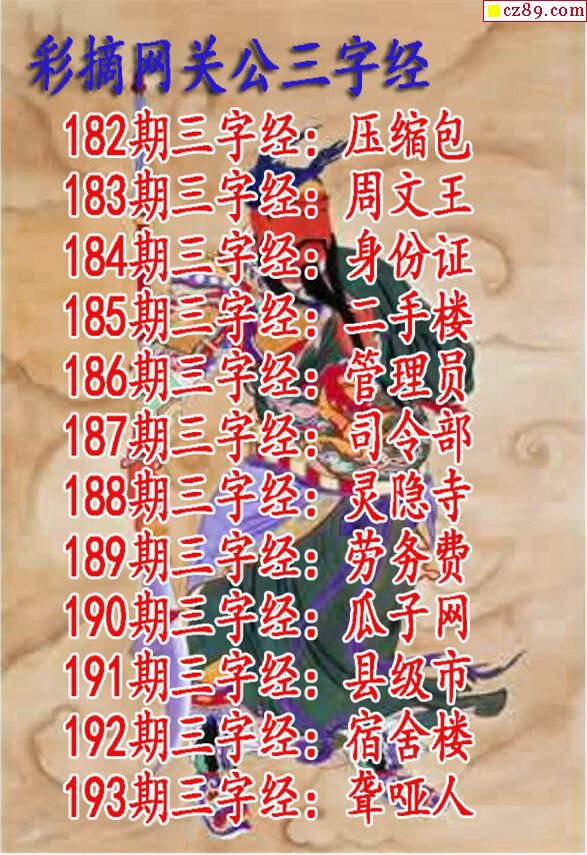 cz89.com
彩摘网关公三字经
182期三字经：压缩包
183期三字经：周文王
184期三字经：身份证
185期三字经：二手楼
186期三字经：管理员
187期三字经：司令部
188期三字经：灵隐寺
189期三字经：劳务费
190期三字经：瓜子网
191期三字经：县级市
192期三字经：宿舍楼
193期三字经：聋哑人